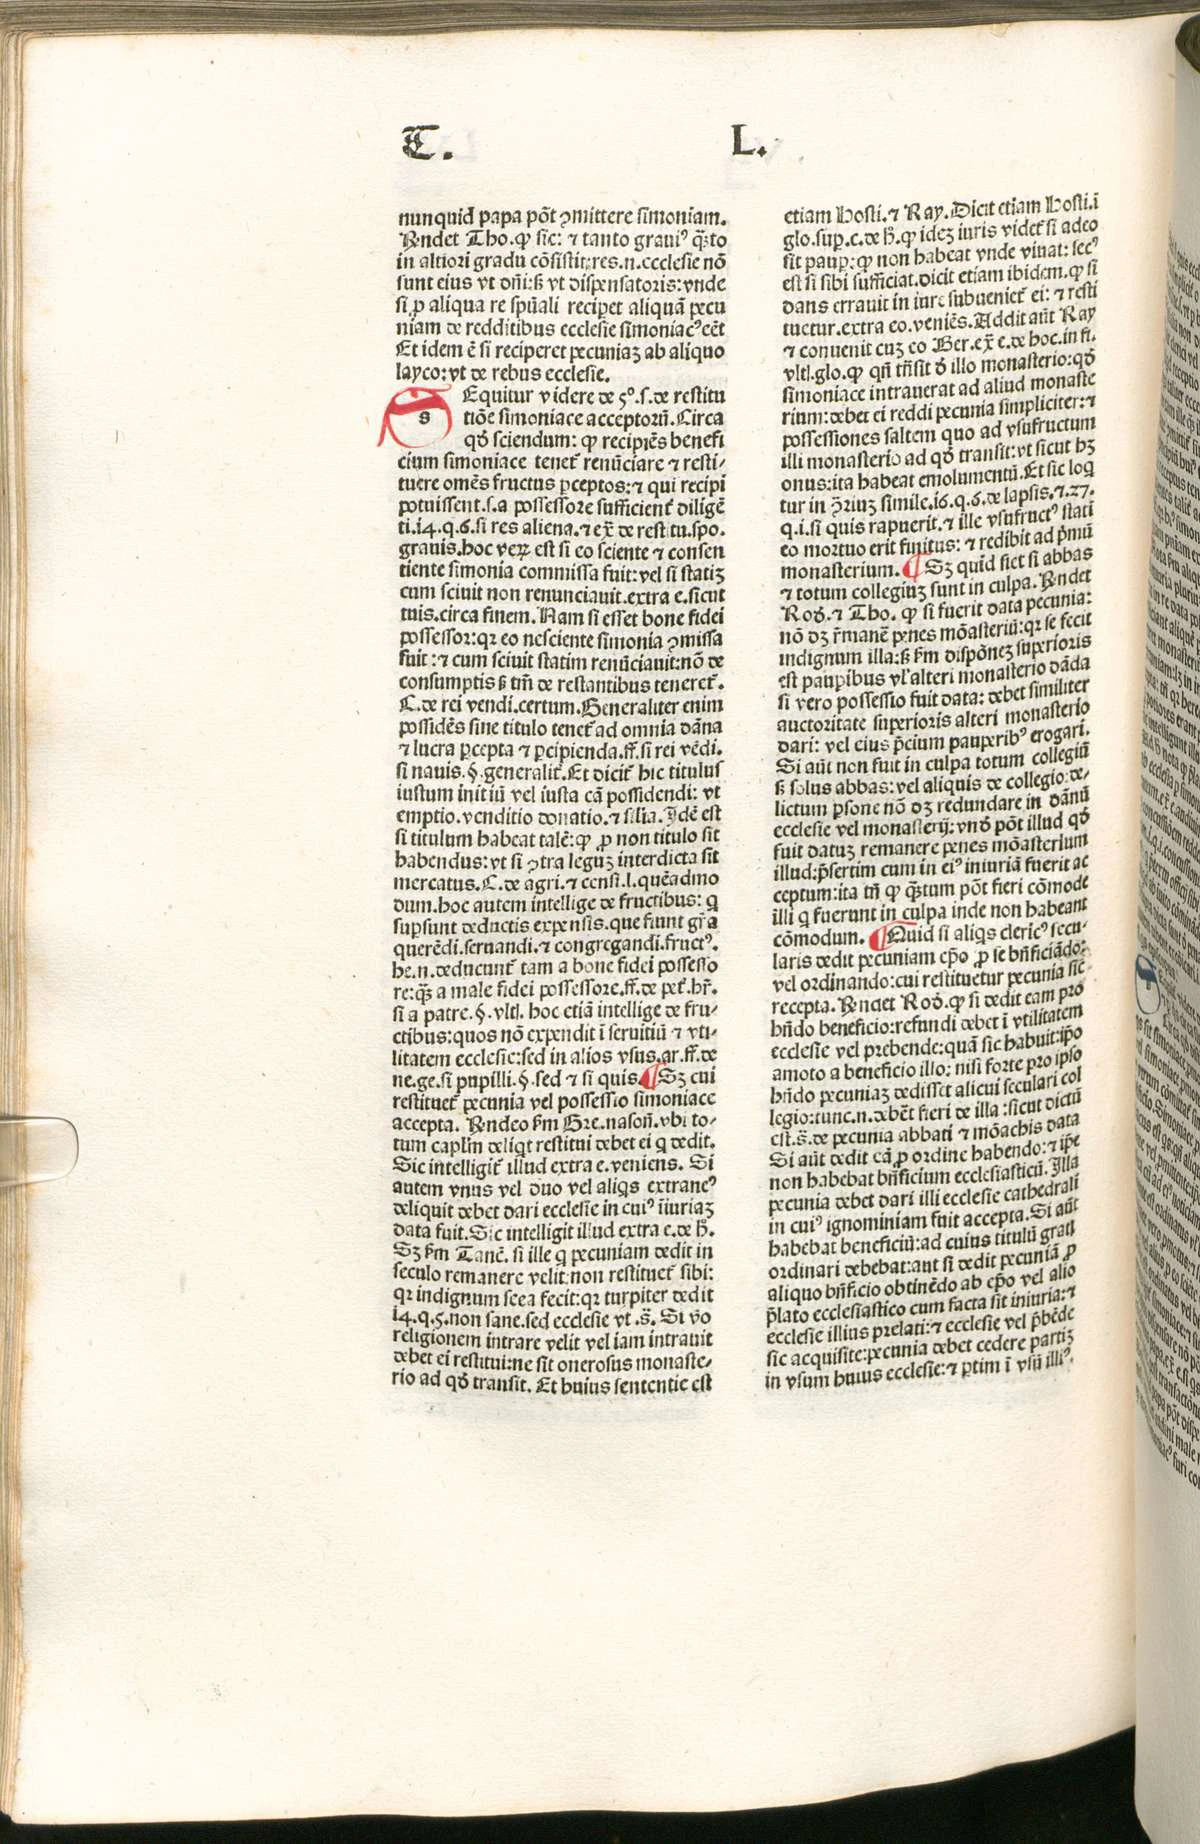 T. L.
nunquid papa põt ꝯmittere simoniam.
Rñdet Tho. ꝙ sic: ⁊ tanto graui⁹ q̃ꝫto
in altiori gradu cõsistit: res .n. ecclesie nõ
sunt eius vt dñi: ß vt dispensatoris: vnde
si ꝓ aliqua re spũali reciꝑet aliquã pecu
niam de redditibus ecclesie simoniac⁹ eẽt
Et idem ẽ si reciperet pecuniaꝫ ab aliquo
layco: vt de rebus ecclesie.
sEquitur videre de 5º. s. de restitu
tiõe simoniace acceptorũ. Circa
qđ sciendum: ꝙ recipiẽs benefi
cium simoniace tenet̃ renũciare ⁊ resti⸗
tuere omẽs fructus ꝑceptos: ⁊ qui recipi
potuissent .s. a possessore sufficient̃ diligẽ
ti. 14. q. 6. si res aliena. ⁊ ex̃ de restitu. spo.
grauis. hoc veꝝ est si eo sciente ⁊ consen
tiente simonia commissa fuit: vel si statiꝫ
cum sciuit non renunciauit. extra e. sicut
tuis. circa finem. Nam si esset bone fidei
possessor: qꝛ eo nesciente simonia ꝯmissa
fuit: ⁊ cum sciuit statim renũciauit: nõ de
consumptis ß tm̃ de restantibus teneret̃.
C. de rei vendi. certum. Generaliter enim
possidẽs sine titulo tenet̃ ad omnia dãna
⁊ lucra ꝑcepta ⁊ ꝑcipienda. ff. si rei vẽdi.
si nauis. §. generalit̃. Et dicit̃ hic titulus
iustum initiũ vel iusta cã possidendi: vt
emptio. venditio donatio. ⁊ silia. Idẽ est
si titulum habeat talẽ: ꝙ ꝓ non titulo sit
habendus: vt si ꝯtra leguꝫ interdicta sit
mercatus. C. de agri. ⁊ censi. l. quẽadmo
dum. hoc autem intellige de fructibus: q
suꝑsunt deductis expensis. que fiunt gr̃a
querẽdi. seruandi. ⁊ congregandi. fruct⁹.
he .n. deducunt̃ tam a bone fidei possesso
re: q̃ꝫ a male fidei possessore. ff. de pet̃. hr̃.
si a patre. §. vltĩ. hoc etiã intellige de fru⸗
ctibus: quos nõ expendit ĩ seruitiũ ⁊ vti⸗
litatem ecclesie: sed in alios vsus. ar. ff. de
ne. ge. si pupilli. §. sed ⁊ si quis. ¶ Sꝫ cui
restituet̃ pecunia vel possessio simoniace
accepta. Rñdeo ẜm Gre. nasoñ. vbi to⸗
tum capłm deliqt restitui debet ei q dedit.
Sic intelligit̃ illud extra e. veniens. Si
autem vnus vel duo vel aliqs extrane⁹
deliquit debet dari ecclesie in cui⁹ iiuriaꝫ
data fuit. Sic intelligit illud extra e. de h̃.
Sꝫ ẜm Tancẽ. si ille q pecuniam dedit in
seculo remanere velit: non restituet̃ sibi:
qꝛ indignum se ea fecit: qꝛ turpiter dedit
14. q. 5. non sane. sed ecclesie vt .s̃. Si vo
religionem intrare velit vel iam intrauit
debet ei restitui: ne sit onerosus monaste⸗
rio ad qđ transit. Et huius sententie est
etiam Hosti. ⁊ Ray. Dicit etiam Hosti. ĩ
glo. suꝑ. c. de h̃. ꝙ ideꝫ iuris videt̃ si adeo
sit pauꝑ: ꝙ non habeat vnde viuat: sec⁹
est si sibi sufficiat. dicit etiam ibidem. ꝙ si
dans errauit in iure subueniet̃ ei: ⁊ resti
tuetur. extra eo. veniẽs. Addit aũt Ray
⁊ conuenit cuꝫ eo Ber. ex̃ e. de hoc. in fi.
vltĩ. glo. ꝙ qñ trãsit đ illo monasterio: qđ
simoniace intrauerat ad aliud monaste
rium: debet ei reddi pecunia simpliciter: ⁊
possessiones saltem quo ad vsufructum
illi monasterio ad qđ transit: vt sicut hꝫ
onus: ita habeat emolumentũ. Et sic loq
tur in ꝯ̃riuꝫ simile. 16. q. 6. de lapsis. ⁊. 27.
q. i. si quis rapuerit. ⁊ ille vsufruct⁹ stati
eo mortuo erit finitus: ⁊ redibit ad p̃mũ
monasterium. ¶ Sꝫ quid fiet si abbas
⁊ totum collegiuꝫ sunt in culpa. Rñdet
Rođ. ⁊ Tho. ꝙ si fuerit data pecunia:
nõ dꝫ r̃manẽ penes mõasteriũ: qꝛ se fecit
indignum illa: ß ẜm dispõneꝫ superioris
est pauꝑibus vl' alteri monasterio dãda
si vero possessio fuit data: debet similiter
auctoritate superioris alteri monasterio
dari: vel eius p̃cium pauperib⁹ erogari.
Si aũt non fuit in culpa totum collegiũ
ß solus abbas: vel aliquis de collegio: de⸗
lictum ꝑsone nõ dꝫ redundare in dãnũ
ecclesie vel monasterij: vnđ põt illud qđ
fuit datuꝫ remanere penes mõasterium
illud: p̃sertim cum in ei⁹ iniuriã fuerit ac
ceptum: ita tñ ꝙ q̃ꝫtum põt fieri cõmode
illi q fuerunt in culpa inde non habeant
cõmodum. ¶ Quid si aliqs cleric⁹ secu⸗
laris dedit pecuniam ep̃o ꝓ se bñficiãdo:
vel ordinando: cui restituetur pecunia sic
recepta. Rñdet Rođ. ꝙ si dedit eam pro
hñdo beneficio: refundi debet ĩ vtilitatem
ecclesie vel prebende: quã sic habuit: ip̃o
amoto a beneficio illo: nisi forte pro ipso
hñdo pecuniaꝫ dedisset alicui seculari col
legio: tunc .n. debẽt fieri de illa: sicut dictũ
est .s̃. de pecunia abbati ⁊ mõachis data
Si aũt dedit eã ꝓ ordine habendo: ⁊ ip̃e
non habebat bñficium ecclesiasticũ. Illa
pecunia debet dari illi ecclesie cathedrali
in cui⁹ ignominiam fuit accepta. Si aũt
habebat beneficiũ: ad cuius titulũ grati
ordinari debebat: aut si dedit pecuniã ꝓ
aliquo bñficio obtinẽdo ab ep̃o vel alio
p̃lato ecclesiastico cum facta sit iniuria: ⁊
ecclesie illius prelati: ⁊ ecclesie vel p̃bẽde
sic acquisite: pecunia debet cedere partiꝫ
in vsum huius ecclesie: ⁊ ꝑtim ĩ vsũ illi⁹.